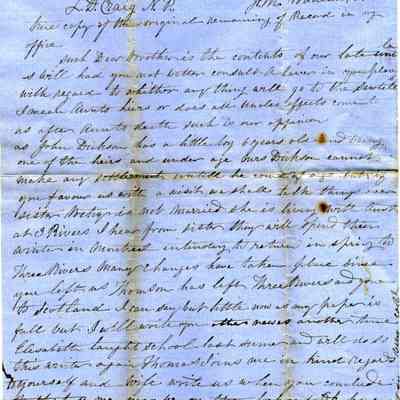 L. D. Craig N. P.
true copy of the original remaining of Record in my
office.
Such Dear Brother is the contents of our late
s Will had you not better consult a
with regard to whether any thing will go to the
I mean Aunts heirs or does all Uncles effects come
us after Aunts death such is our opinion
as John Dickson has a little boy 6 years old and being
one of the heirs and under age Mrs Dickson cannot
make any settlement untill he comes of age but if
you favour us with a visit we shall talk things over
sister is not married she is living with Aunt
at 3 Rivers I hear from sister they will spend their
winter in Montreal intending to return in spring to
Three Rivers many changes have taken place since
you left us Thomson has left Three Rivers and gone
to Scotland I can say but little now as my paper is
full but I will write you other news another time
Elesabeth taught school last summer and will do so
this winter again Thomas Joins me in kind regards
to yourself and wife write us when you conclude